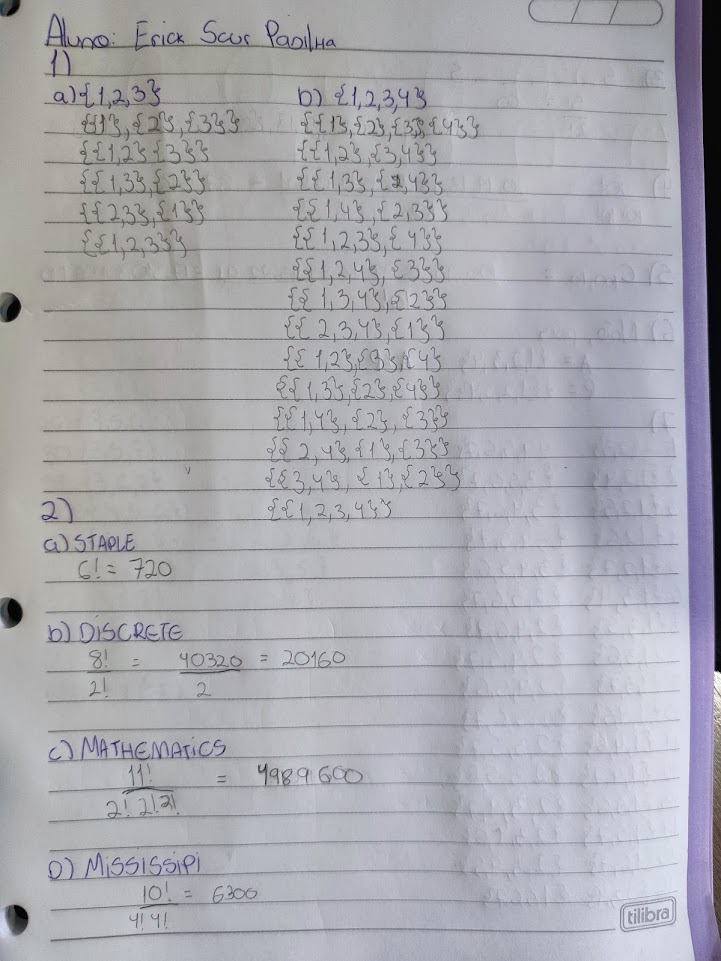 Aluno: Erick Scur Padilha
1)
a) {1,2,3}
{{1}, {2}, {3}}
{{1,2} {3}}
{{1,3}, {2}}
{{2,3}, {1}}
{{1,2,3}}
b) {1,2,3,4}
{{1}, {2}, {3}, {4}}
{{1,2}, {3,4}}
{{1,3}, {2,4}}
{{1,4}, {2,3}}
{{1,2,3}, {4}}
{{1,2,4}, {3}}
{{1,3,4}, {2}}
{{2,3,4}, {1}}
{{1,2}, {3}, {4}
{{1,3}, {2}, {4}}
{{1,4}, {2}, {3}}
{{2,4}, {1}, {3}}
{{3,4}, {1}, {2}}
{{1,2,3,4}}
2)
a) STAPLE
6! = 720
b) DISCRETE
8! = 40320 = 20160
2! 2
c) MATHEMATICS
11! = 4989600
2! 2! 2!
D) MISSISSIPI
10! = 6300
4! 4!
tilibra